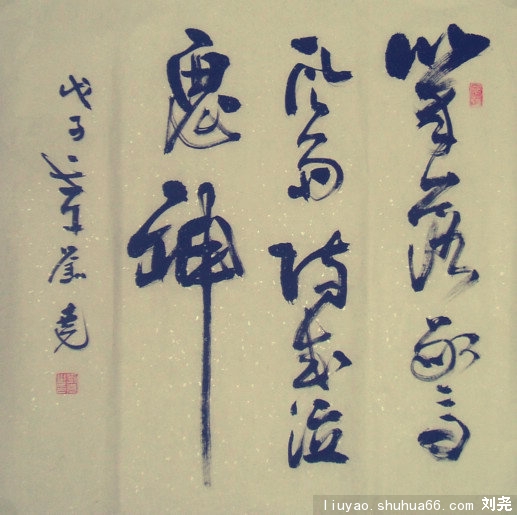 筆落驚
風雨詩成泣
鬼神
戊子年堯
liuyao.shuhua66.com 刘尧